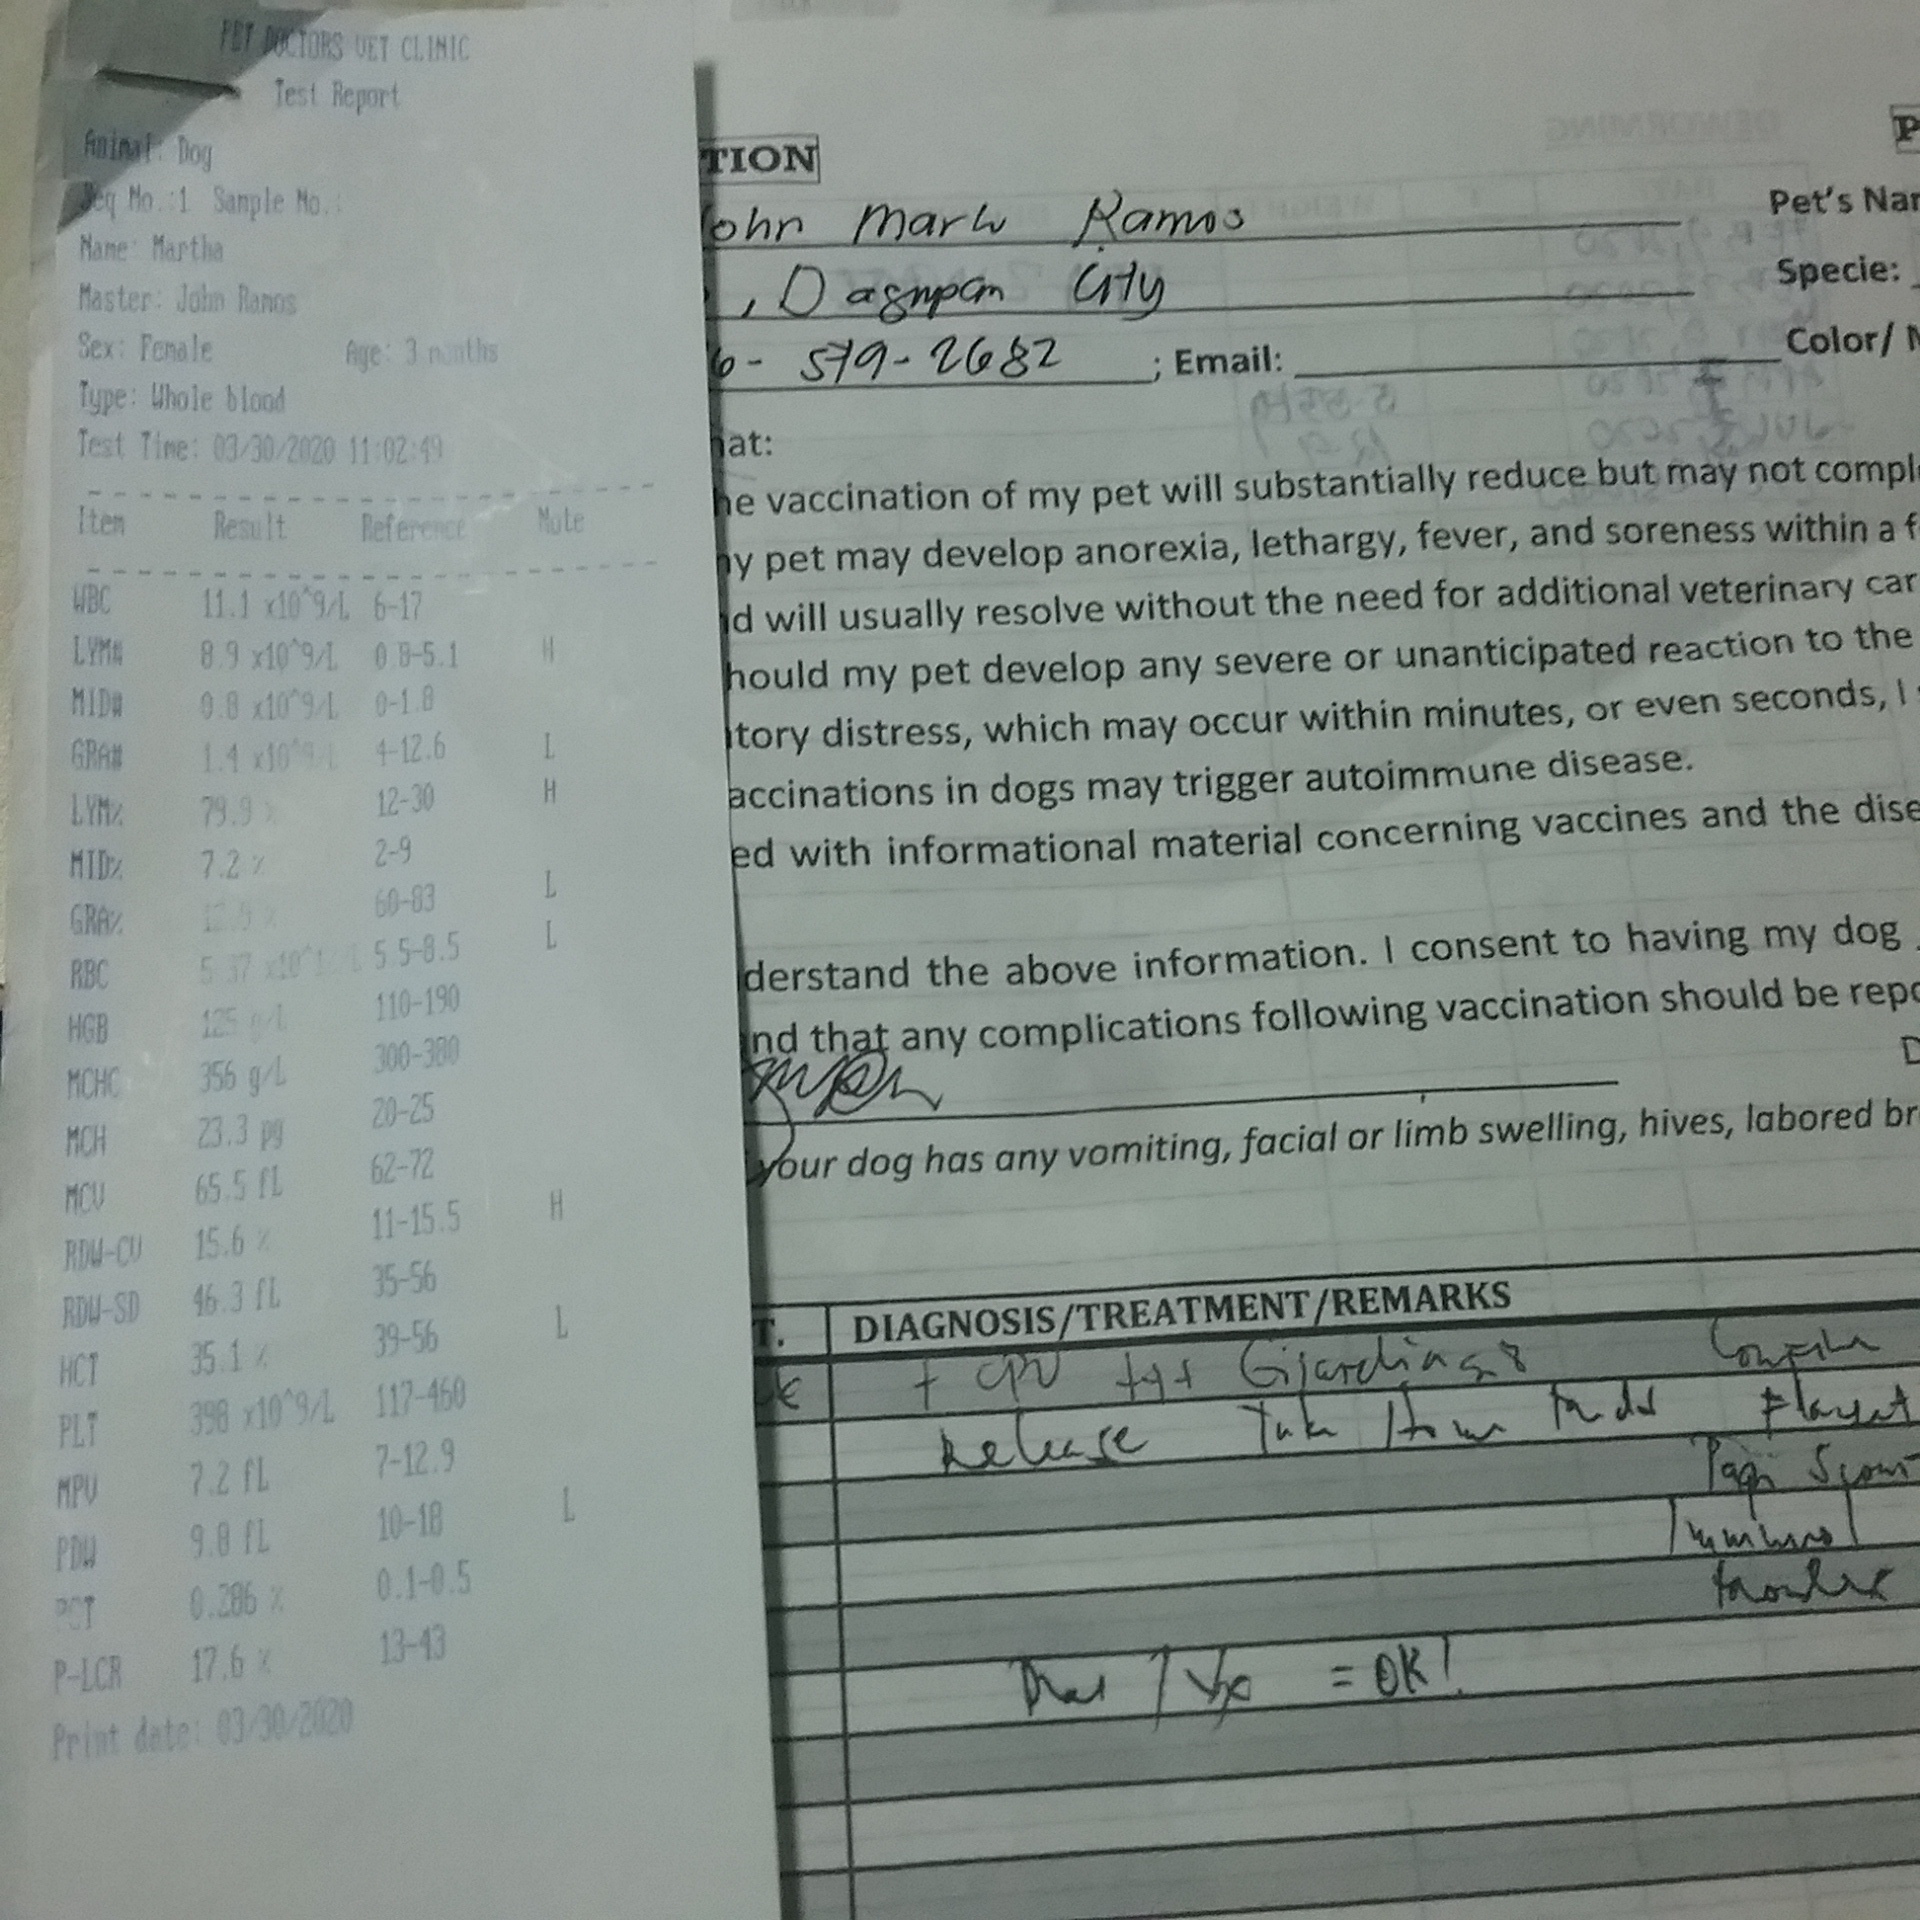 PET DOCTORS VET CLINIC
Test Report
Animal: Dog
Seq No.:1 Sample No.:
Name: Martha
Master: John Ramos
Sex: Female Age: 3 months
Type: Whole blood
Test Time: 03/30/2020 11:02:49
Item Result Reference Note
WBC 11.1 x10^9/L 6-17
LYM# 8.9 x10^9/L 0.8-5.1 H
MID# 0.8 x10^9/L 0-1.8
GRA# 1.4 x10^9/L 4-12.6 L
LYM% 79.9 % 12-30 H
MID% 7.2 % 2-9
GRA% 60-83 L
RBC 5.37 5.5-8.5 L
HGB 125 g/L 110-190
MCHC 356 g/L 300-380
MCH 23.3 pg 20-25
MCV 65.5 fL 62-72
RDW-CV 15.6 % 11-15.5 H
RDW-SD 46.3 fL 35-56
HCT 35.1 % 39-56 L
PLT 398 x10^9/L 117-460
MPV 7.2 fL 7-12.9
PDW 9.8 fL 10-18 L
PCT 0.286 % 0.1-0.5
P-LCR 17.6 % 13-43
Print date: 03/30/2020
TION P
John Mark Ramos Pet's Nam
, Dagupan City Specie:
6- 579-2682 ; Email: Color/ M
hat:
he vaccination of my pet will substantially reduce but may not comple
my pet may develop anorexia, lethargy, fever, and soreness within a f
nd will usually resolve without the need for additional veterinary car
hould my pet develop any severe or unanticipated reaction to the
tory distress, which may occur within minutes, or even seconds, I
accinations in dogs may trigger autoimmune disease.
ed with informational material concerning vaccines and the dise
derstand the above information. I consent to having my dog
and that any complications following vaccination should be repo
D
your dog has any vomiting, facial or limb swelling, hives, labored br
T. DIAGNOSIS/TREATMENT/REMARKS
+ CPV
Release Take Home Meds
= OK!